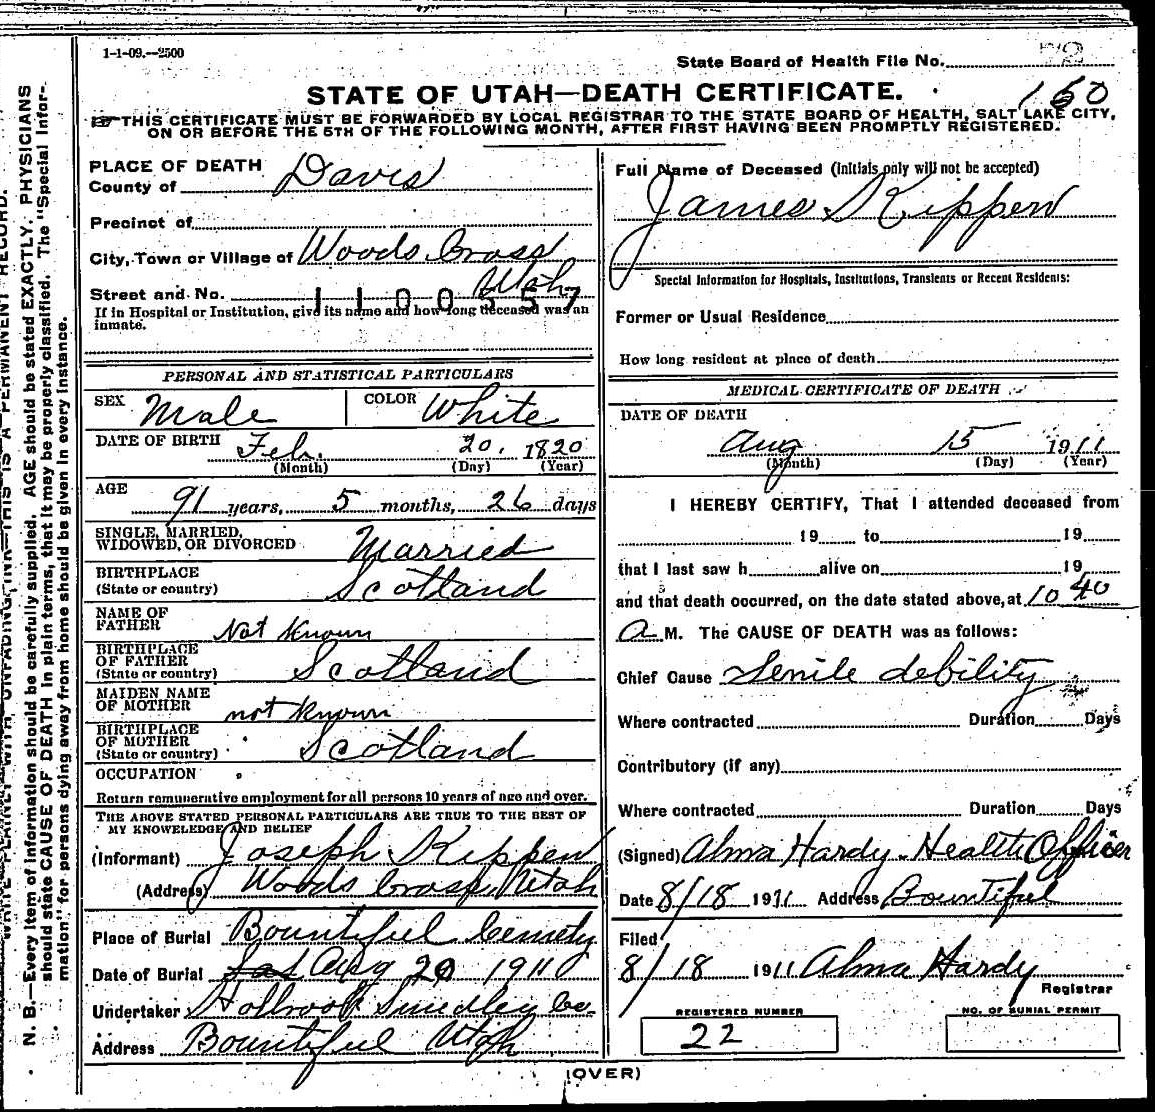 1-1-09.—2500
State Board of Health File No.
150
STATE OF UTAH—DEATH CERTIFICATE.
THIS CERTIFICATE MUST BE FORWARDED BY LOCAL REGISTRAR TO THE STATE BOARD OF HEALTH, SALT LAKE CITY,
ON OR BEFORE THE 5TH OF THE FOLLOWING MONTH, AFTER FIRST HAVING BEEN PROMPTLY REGISTERED.
PLACE OF DEATH
County of Davis
Precinct of
City, Town or Village of Woods Cross
Utah
Street and No.
1100557
If in Hospital or Institution, give its name and how long deceased was an
inmate.
PERSONAL AND STATISTICAL PARTICULARS
SEX Male COLOR White
DATE OF BIRTH Feb. 20, 1820
(Month) (Day) (Year)
AGE
91 years, 5 months, 26 days
SINGLE, MARRIED,
WIDOWED, OR DIVORCED Married
BIRTHPLACE
(State or country) Scotland
NAME OF
FATHER Not Known
BIRTHPLACE
OF FATHER
(State or country) Scotland
MAIDEN NAME
OF MOTHER not known
BIRTHPLACE
OF MOTHER
(State or country) Scotland
OCCUPATION
Return remunerative employment for all persons 10 years of age and over.
THE ABOVE STATED PERSONAL PARTICULARS ARE TRUE TO THE BEST OF
MY KNOWELEDGE AND BELIEF
(Informant) Joseph Kippen
(Address) Woods Cross, Utah
Place of Burial Bountiful Cemety
Date of Burial Aug 20 1911
Undertaker Holbrook Smedley Co.
Address Bountiful Utah
Full Name of Deceased (initials only will not be accepted)
James Kippen
Special Information for Hospitals, Institutions, Transients or Recent Residents:
Former or Usual Residence
How long resident at place of death
MEDICAL CERTIFICATE OF DEATH
DATE OF DEATH
Aug 15 1911
(Month) (Day) (Year)
I HEREBY CERTIFY, That I attended deceased from
19 to 19
that I last saw h alive on 19
and that death occurred, on the date stated above, at 10 40
a M. The CAUSE OF DEATH was as follows:
Chief Cause Senile debility
Where contracted Duration Days
Contributory (if any)
Where contracted Duration Days
(Signed) Alma Hardy. Health Officer
Date 8/18 1911 Address Bountiful
Filed
8/18 1911 Alma Hardy
Registrar
REGISTERED NUMBER
22
NO. OF BURIAL PERMIT
(OVER)
N. B.—Every item of information should be carefully supplied. AGE should be stated EXACTLY. PHYSICIANS
should state CAUSE OF DEATH in plain terms, that it may be properly classified. The "Special Infor-
mation" for persons dying away from home should be given in every instance.